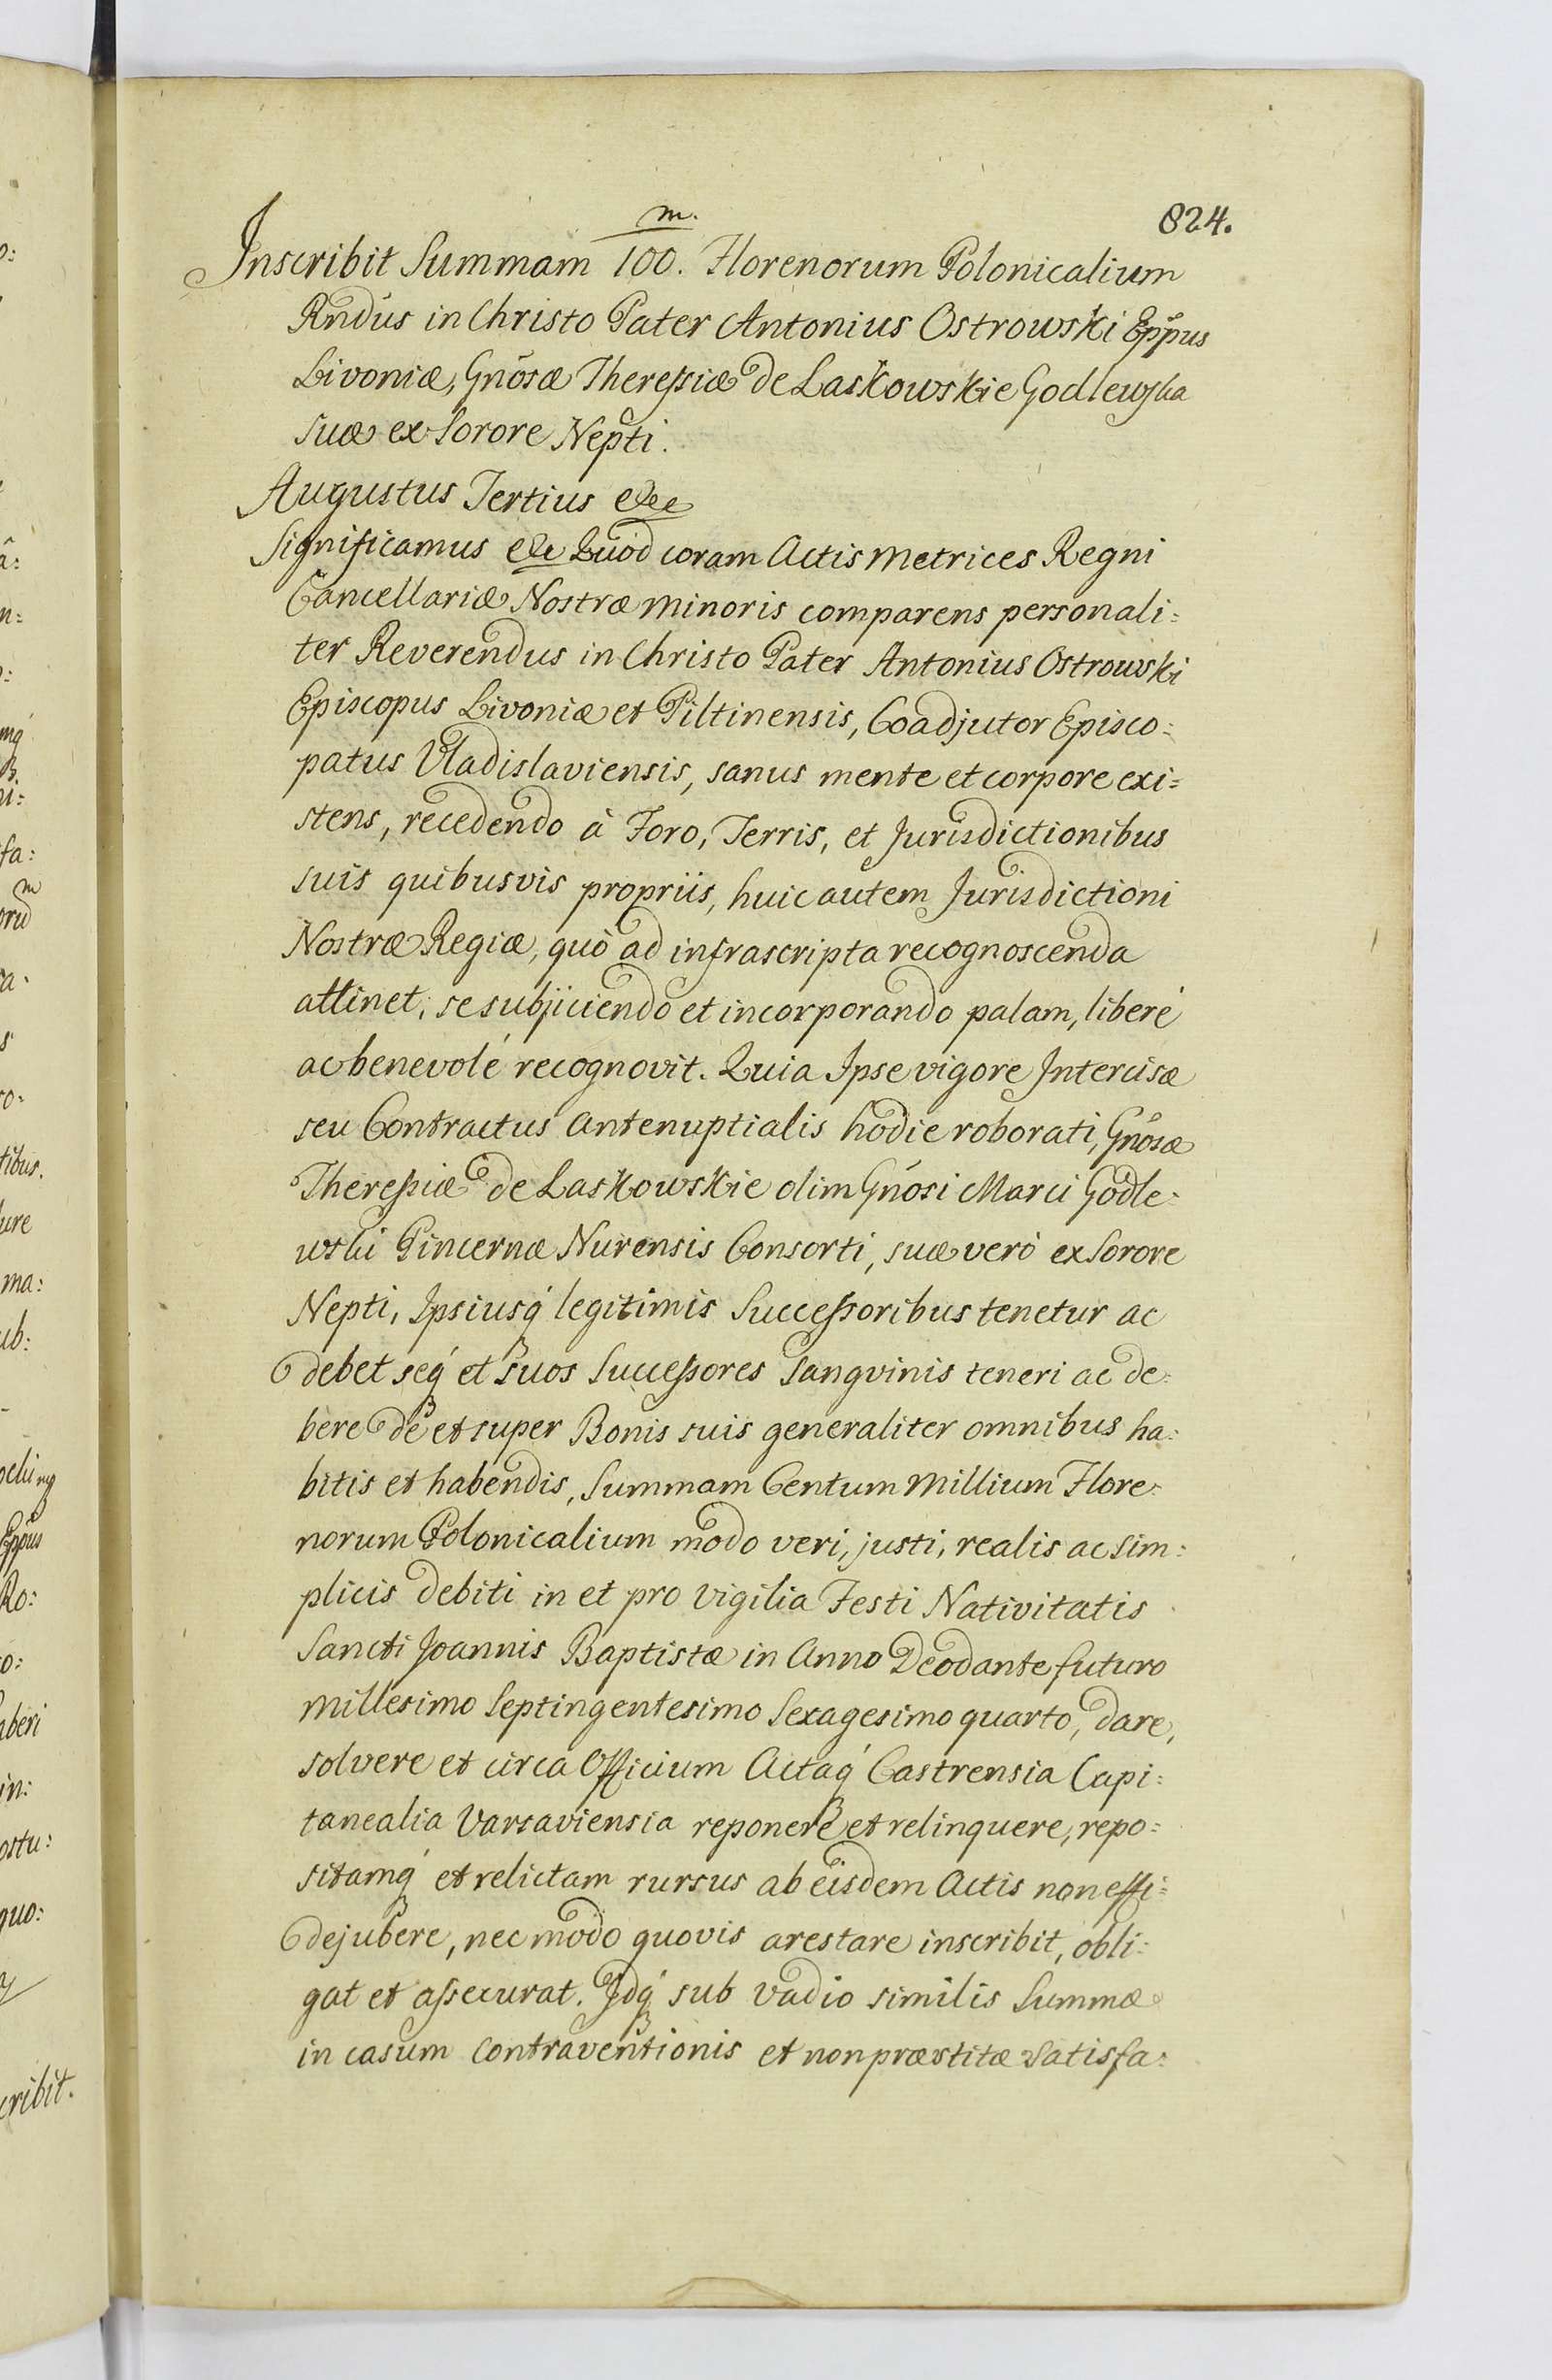 824.
m.
Inscribit Summam 100. Florenorum Polonicalium
Rñdus in Christo Pater Antonius Ostrowski Eppus
Livoniæ, Gnõsæ Theressiæ de Laskowskie Godlewska
suæ ex Sorore Nepti.
Augustus Tertius etc
Significamus etc Quod coram Actis Metrices Regni
Cancellariæ Nostræ minoris comparens personali=
ter Reverendus in Christo Pater Antonius Ostrowski
Episcopus Livoniæ et Piltinensis, Coadjutor Episco=
patus Vladislaviensis, sanus mente et corpore exi=
stens, recedendo à Foro, Terris, et Jurisdictionibus
suis quibusvis propriis, huic autem Jurisdictioni
Nostræ Regiæ, quò ad infrascripta recognoscenda
attinet, se subjiciendo et incorporando palam, liberé
ac benevolé recognovit. Quia Ipse vigore Intercisæ
seu Contractus antenuptialis hodie roborati, Gnõsæ
Theressiæ de Laskowskie olim Gnõsi Marci Godle=
wski Pincernæ Nurensis Consorti, suæ verò ex Sorore
Nepti, Ipsiusq́ legitimis Successoribus tenetur ac
debet seq́ et suos Successores sangvinis teneri ac de=
bere de et super Bonis suis generaliter omnibus ha=
bitis et habendis, Summam Centum Millium Flore=
norum Polonicalium modo veri, justi, realis ac sim=
plicis debiti in et pro Vigilia Festi Nativitatis
Sancti Joannis Baptistæ in Anno Deo dante futuro
Millesimo Septingentesimo Sexagesimo quarto, dare,
solvere et circa Officium Actaq́ Castrensia Capi=
tanealia Varsaviensia reponere et relinquere, repo=
sitamq́ et relictam rursus ab eisdem Actis non effi=
dejubere, nec modo quovis arestare inscribit, obli=
gat et assecurat. Idq́ sub vadio similis Summæ
in casum contraventionis et non præstitæ satisfa=